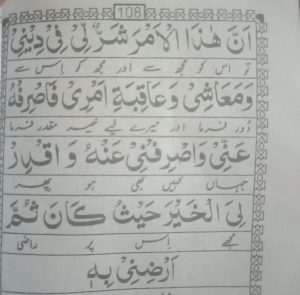 108
اَنَّ هٰذَا الْاَمْرَ شَرٌّ لِّیْ فِیْ دِیْنِیْ
تو اس کو مجھ سے اور مجھ کو اس سے
وَمَعَاشِیْ وَعَاقِبَةِ اَمْرِیْ فَاصْرِفْهُ
دور فرما اور میرے لیے خیر مقدر فرما
عَنِّیْ وَاصْرِفْنِیْ عَنْهُ وَاقْدِرْ
جہاں کہیں بھی ہو پھر
لِیَ الْخَیْرَ حَیْثُ كَانَ ثُمَّ
مجھے اس پر راضی
اَرْضِنِیْ بِهٖ